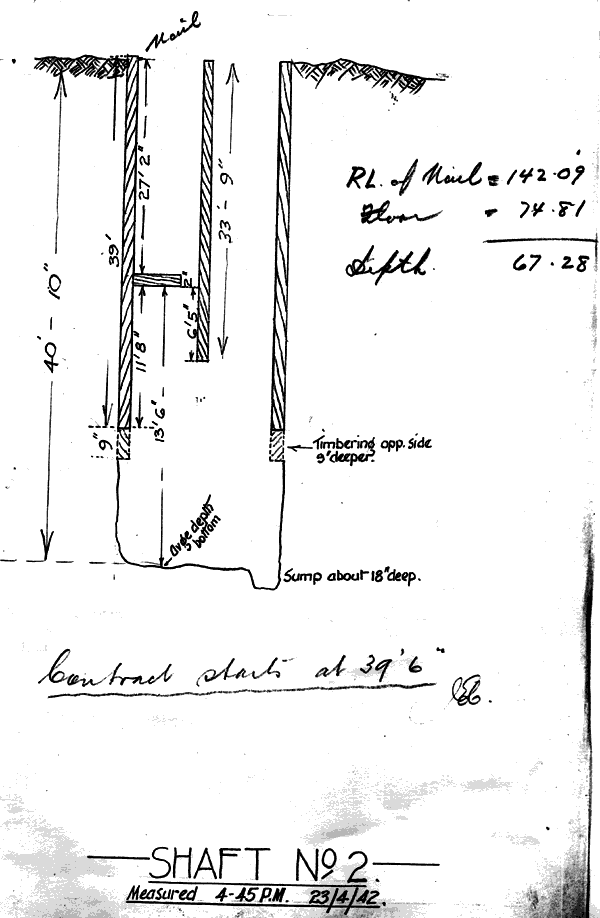 Nail
27' 2"
33' - 9"
RL. of Nail = 142.09
Floor = 74.81
Depth. 67.28
39'
2"
6'5"
40' - 10"
11'8"
13'6"
9"
Timbering opp. side
9" deeper.
Avge depth
bottom
Sump about 18" deep.
Contract starts at 39' 6"
SHAFT No 2.
Measured 4-45 P.M. 23/4/42.